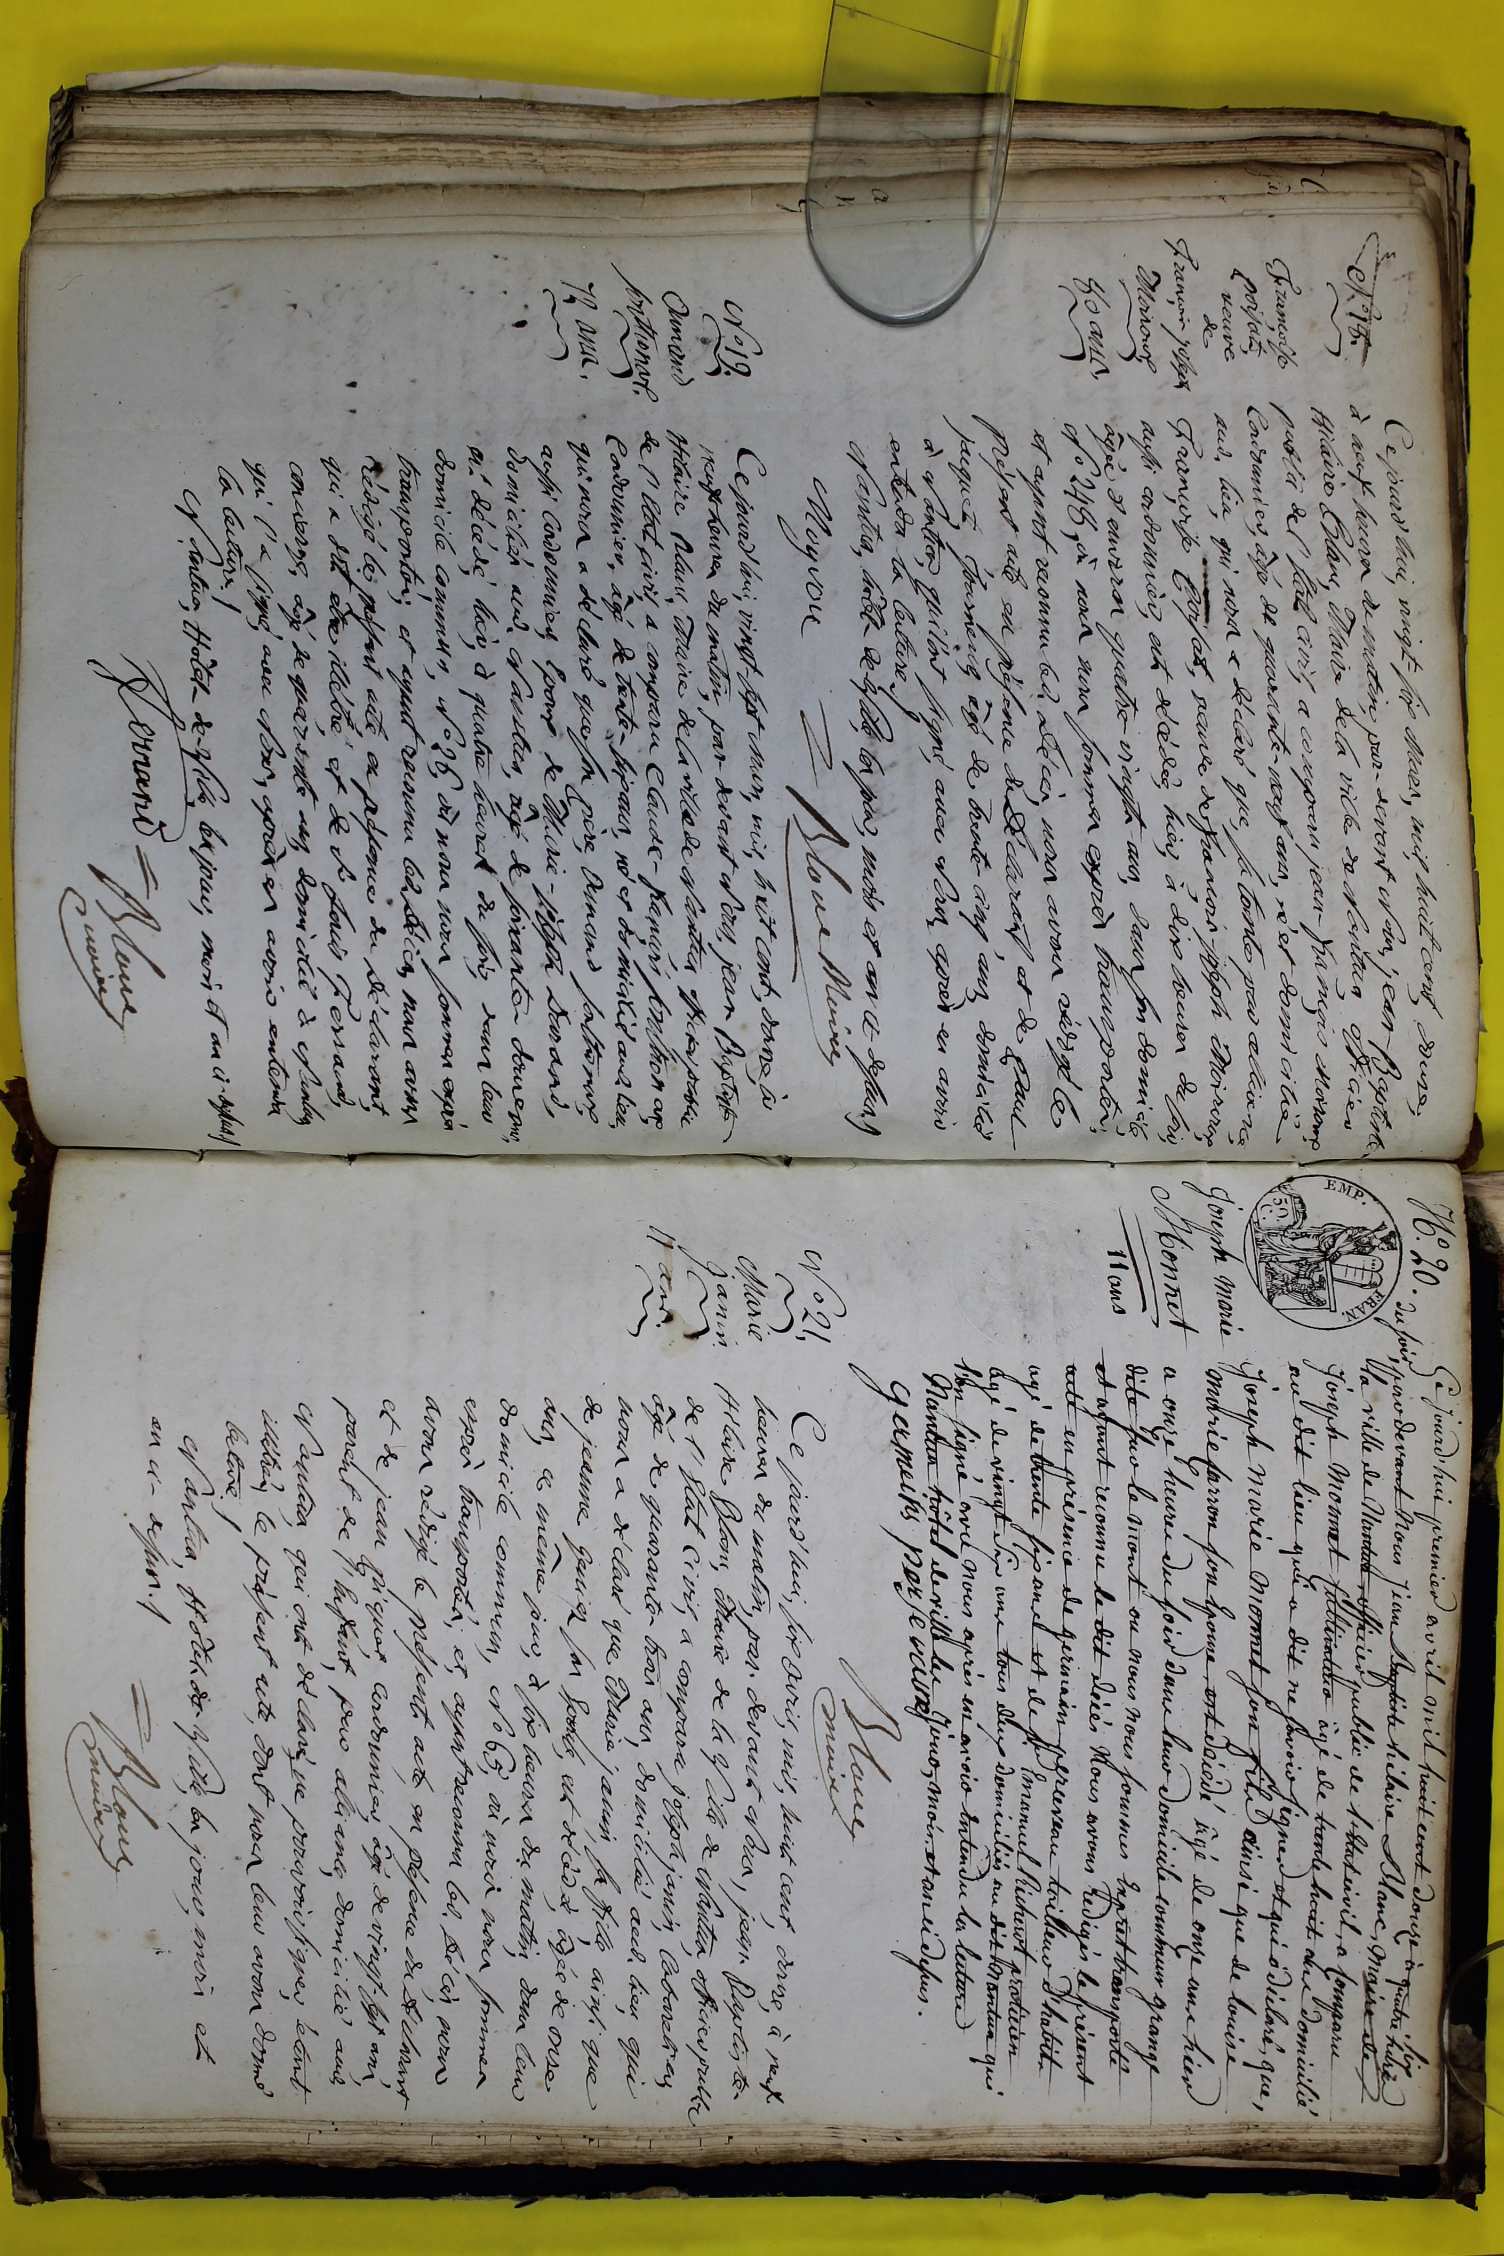 N.° 18.
Françoise
poisat,
veuve
de
François joseph
Moiroux
80 ans.
Ce jourd'hui, vingt six Mars, mil huit cent douze,
à neuf heures du matin, par-devant Nous, jean-Baptiste
Hilaire Blanc, Maire de la ville de Nantua, officier
public de l'état civil, a comparu jean-françois Moiroux
Cordonnier, âgé de quarante-neuf ans, né et domicilié
aud. lieu, qui nous a déclaré que, sa tante par alliance,
Françoise Poisat, veuve de françois joseph Moiroux,
aussi cordonnier, est décédée, hier, à dix heures du soir,
âgée d'environ quatre-vingts ans, dans son domicile
N.° 248, où nous nous sommes exprès transportés;
et ayant reconnu led. Décès, nous avons rédigé le
présent acte en présence du Déclarant et de
jacquet, âgé de trente-cinq ans, domicilié
à Nantua, qui l'ont signé avec Nous, après en avoir
entendu la lecture.
Nantua, hôtel-de-ville les jour, mois et an ci-dessus.
Blanc Maire
N.° 19.
Ce jourd'hui, vingt sept mars, mil huit cent, douze, à
neuf heures du matin, par-devant Nous, jean-Baptiste
Hilaire Blanc, Maire de la ville de Nantua, officier public
de l'état civil, a comparu Claude-francois
Cordonnier, âgé de trente-six ans, né et domicilié aud. lieu,
qui nous a déclaré que son père,
aussi cordonnier, époux de Marie-joseph
domiciliés aud. Nantua, âgé de soixante douze ans,
est décédé, hier, à quatre heures du soir, dans leur
domicile commun, N.° 26, où nous nous sommes exprès
transportés; et ayant reconnu led. Décès, nous avons
rédigé le présent acte en présence du Déclarant
qui a dit être illétré et de
concierge, âgé de quarante ans, domicilié à Nantua,
qui l'a signé, avec Nous, après en avoir entendu
la lecture.
Nantua, Hôtel-de-ville les jour, mois et an ci-dessus.
Blanc
maire
EMP. FRAN.
50 C.
N.° 20.
Joseph Marie
Monnet
11 ans
Ce jourd'hui premier avril mil huit cent douze à quatre heures
du soir, par devant Nous Jean Baptiste hilaire Blanc, Maire de
la ville de Nantua officier public de l'état civil, a comparu
Joseph Monnet âgé de trente huit ans domicilié
au dit lieu qui a dit ne savoir signer et qui a déclaré, que,
Joseph Marie Monnet son fils ainsi que de louise
marie son épouse est décédé âgé de onze ans hier
a onze heures du soir dans leur domicile commun
ou nous nous sommes exprès transportés
et ayant reconnu le dit décès Nous avons rédigés le présent
acte en présence de germain tailleur d'habits
agé de trente six ans et de Emanuel praticien
agé de vingt six ans tous deux domiciliés au dit Nantua qui
l'on signé avec nous après en avoir entendu la lecture
Nantua hôtel de ville les jour, mois et an ci dessus.
Blanc
maire
N.° 21.
Marie
janin.
11 ans.
Ce jourd'hui, six avril, mil, huit cent douze, à neuf
heures du matin, par-devant Nous, jean-Baptiste
Hilaire Blanc, Maire de la Ville de Nantua, officier public
de l'état civil, a comparu joseph janin,
âgé de quarante-trois ans, domicilié aud. lieu, qui
nous a déclaré que Marie janin, sa fille, ainsi que
de jeanne son épouse, est décédée, âgée de onze
ans, ce même jour, à six heures du matin, dans leur
domicile commun, N.° 63, où nous nous sommes
exprès transportés; et, ayant reconnu led. Décès, nous
avons rédigé le présent acte, en présence du Déclarant
et de jean piquet, cordonnier, âgé de vingt-sept ans,
parent de l'enfant, par alliance, domicilié aud.
Nantua, qui ont déclaré ne pouvoir signer, étant
illétrés, le présent acte, dont nous leur avons donné
lecture.
Nantua, Hôtel-de-Ville, les jour, mois et
an ci-dessus.
Blanc
maire